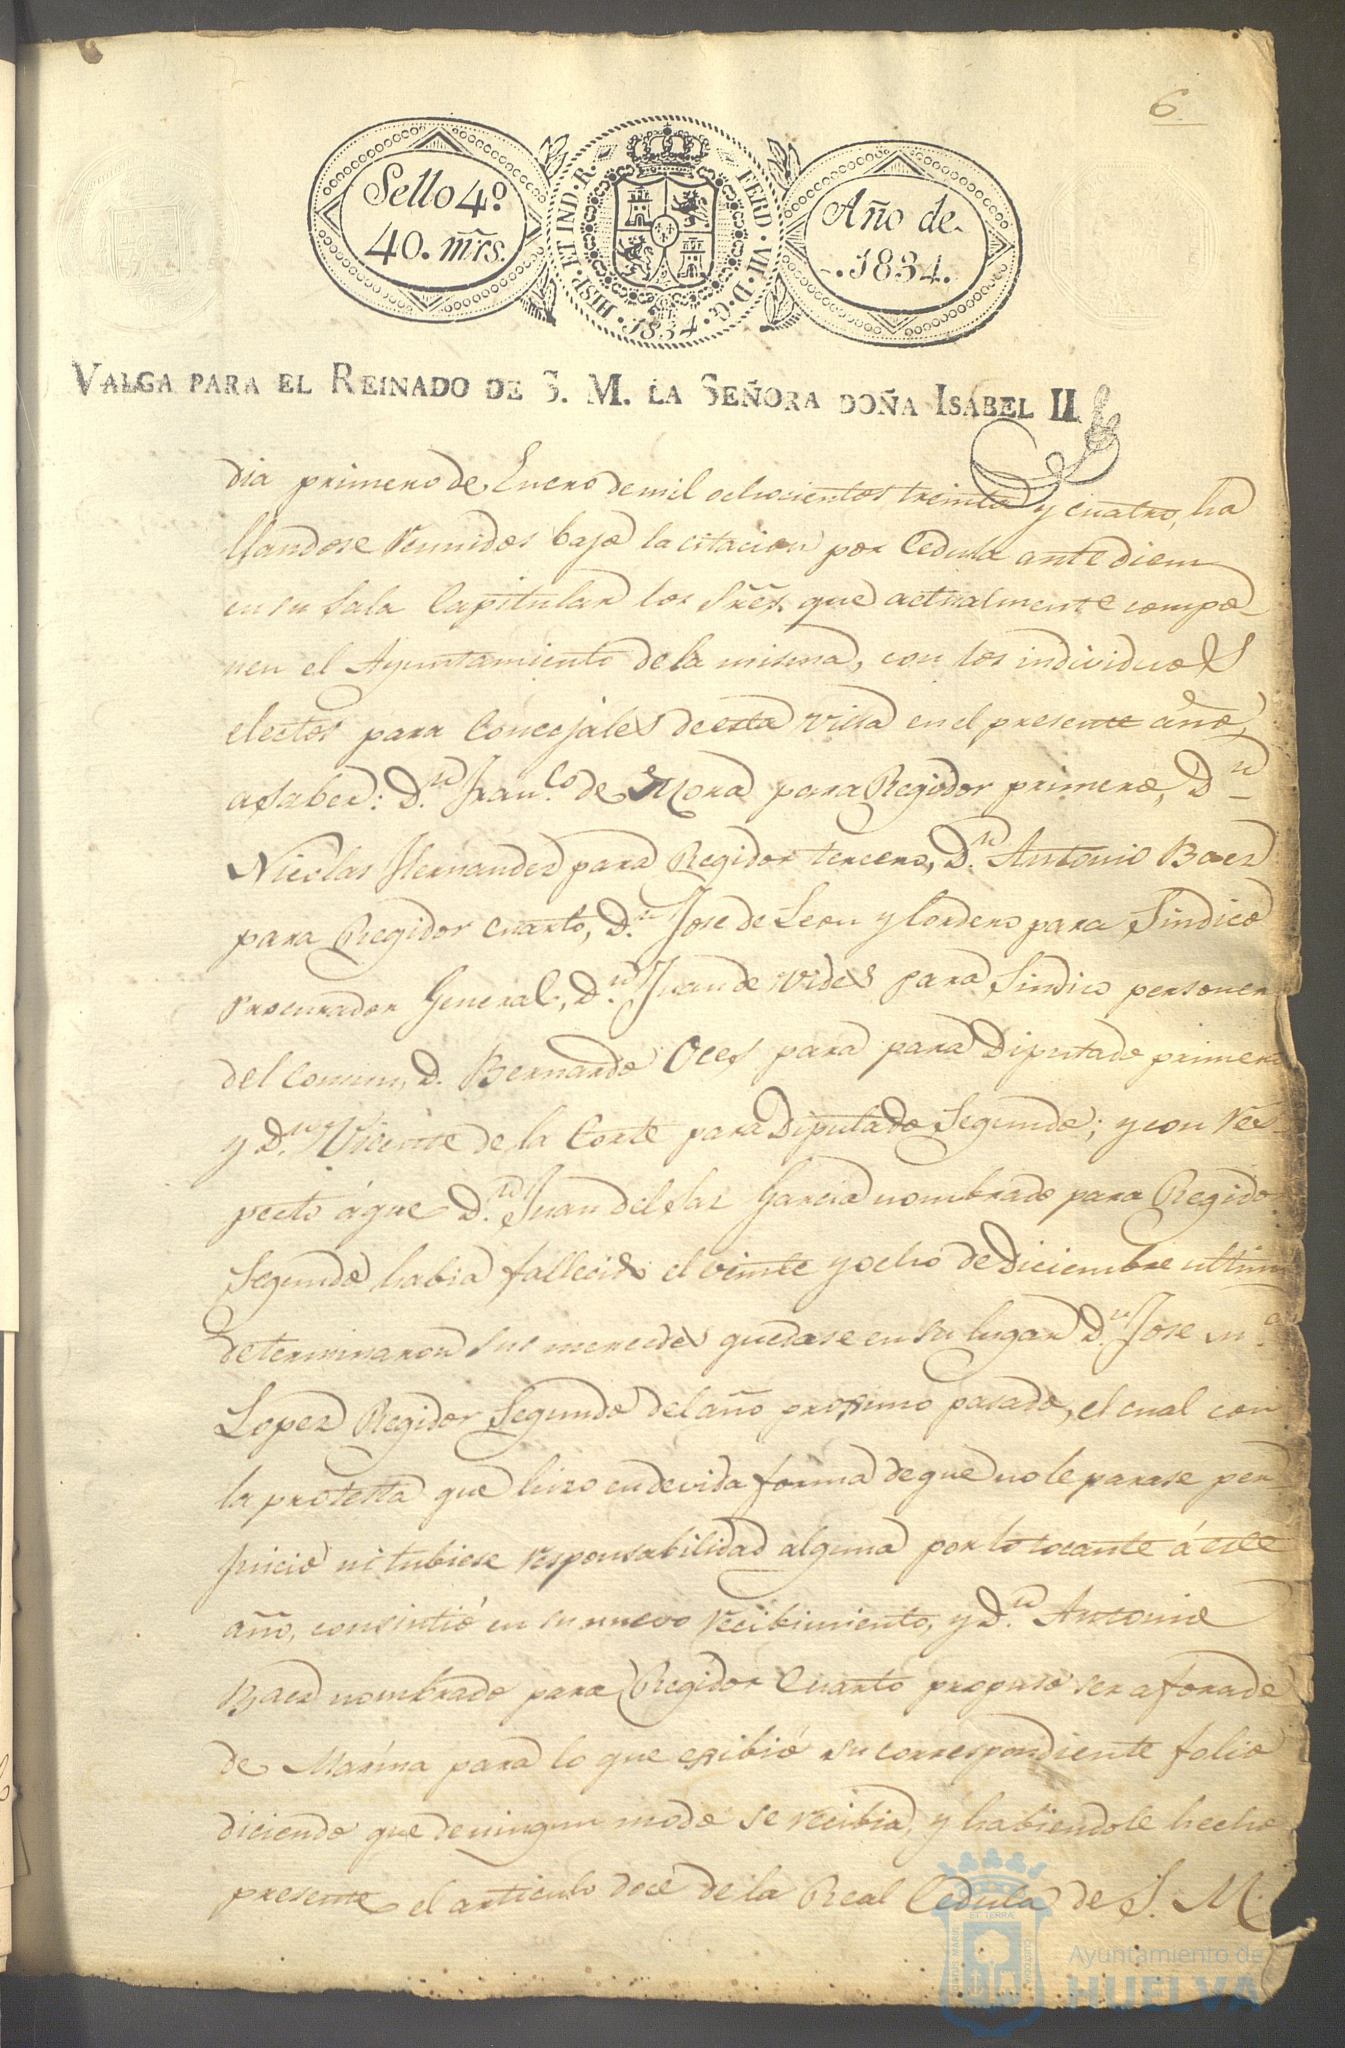 6
Sello 4º
40. mrs.
HISP. ET IND. R. FERD. VII. D. G. 1834.
Año de
1834.
VALGA PARA EL REINADO DE S. M. LA SEÑORA DOÑA ISABEL II
dia primero de Enero de mil ochocientos treinta y cuatro, ha
llandose reunidos bajo la citacion por Cedula ante diem
en su Sala Capitular los Sres. que actualmente compo
nen el Ayuntamiento de la misma, con los individuos
electos para Concejales de esta villa en el presente año,
a saber: D.n Fran.co de Mora para Regidor primero, D.n
Nicolas Hernandez para Regidor tercero, D.n Antonio Baez
para Regidor cuarto, D.n Jose de Leon y Cordero para Sindico
Procurador General, D.n Juan de Vides para Sindico personero
del Comun, D. Bernardo Oces para para Diputado primero
y D.n Vicente de la Corte para Diputado Segundo; y con res-
pecto á que D.n Juan del Saz Garcia nombrado para Regidor
Segundo habia fallecido el veinte y ocho de Diciembre ultimo
determinaron sus mercedes quedase en su lugar D.n Jose M.a
Lopez Regidor Segundo del año prosimo pasado, el cual con
la protesta que hizo en devida forma de que no le parase per
juicio ni tubiese responsabilidad alguna por lo tocante á este
año, consintió en su nuevo recibimiento, y D.n Antonio
Baez nombrado para Regidor Cuarto propuso ser aforado
de Marina para lo que esibió su correspondiente folio
diciendo que de ningun modo se recibia, y habiendole hecho
presente el articulo doce de la Real Cedula de S. M.
Ayuntamiento de
HUELVA